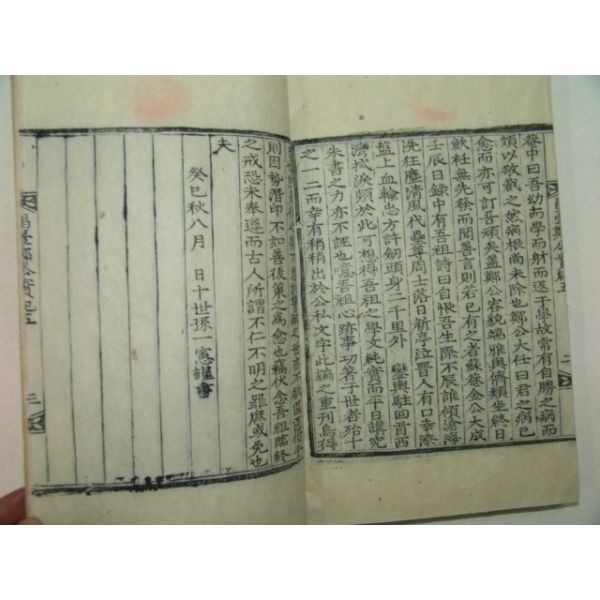 菴中曰吾幼而學而財而返于學故常有自勝之病而
頗以敬裁之然病根尚未除也鄭公大任曰君之病已
愈而亦可訂吾頑矣盖鄭公容貌端雅與儕類坐終日
斂衽無先發而聞善言則若已有之者蘇菴金公大成
壬辰日錄中有吾祖詩曰自恨吾生際不辰誰傾滄海
洗狂塵清風代壘尊周士落日新亭泣晋人有口幸濟
盤上血輸忠方許劒頭身二千里外 鑾輿駐回首西
涙類於此可想得吾祖之學文純實而平日講究
朱書之力亦不誣也噫吾祖心跡事功著于世者殆十
之一二而幸有稍稍出於公私文字此編之重刊烏得
則因勢潛印不如善後策之爲愈也竊伏念吾祖臨終
之戒恐未奉遵而古人所謂不仁不明之罪庶或免也
夫
癸巳秋八月 日十世孫一憲謹書
二